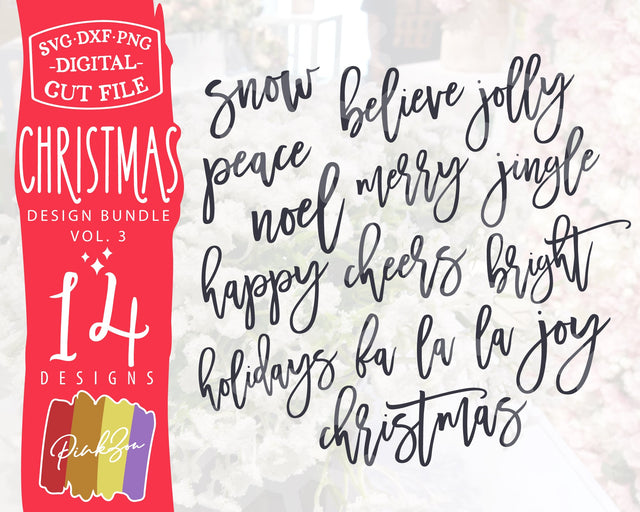 SVG·DXF·PNG
-DIGITAL-
CUT FILE
CHRISTMAS
DESIGN BUNDLE
VOL. 3
14
DESIGNS
PinkZou
snow believe jolly
peace merry jingle
noel
happy cheers bright
holidays fa la la la joy
christmas